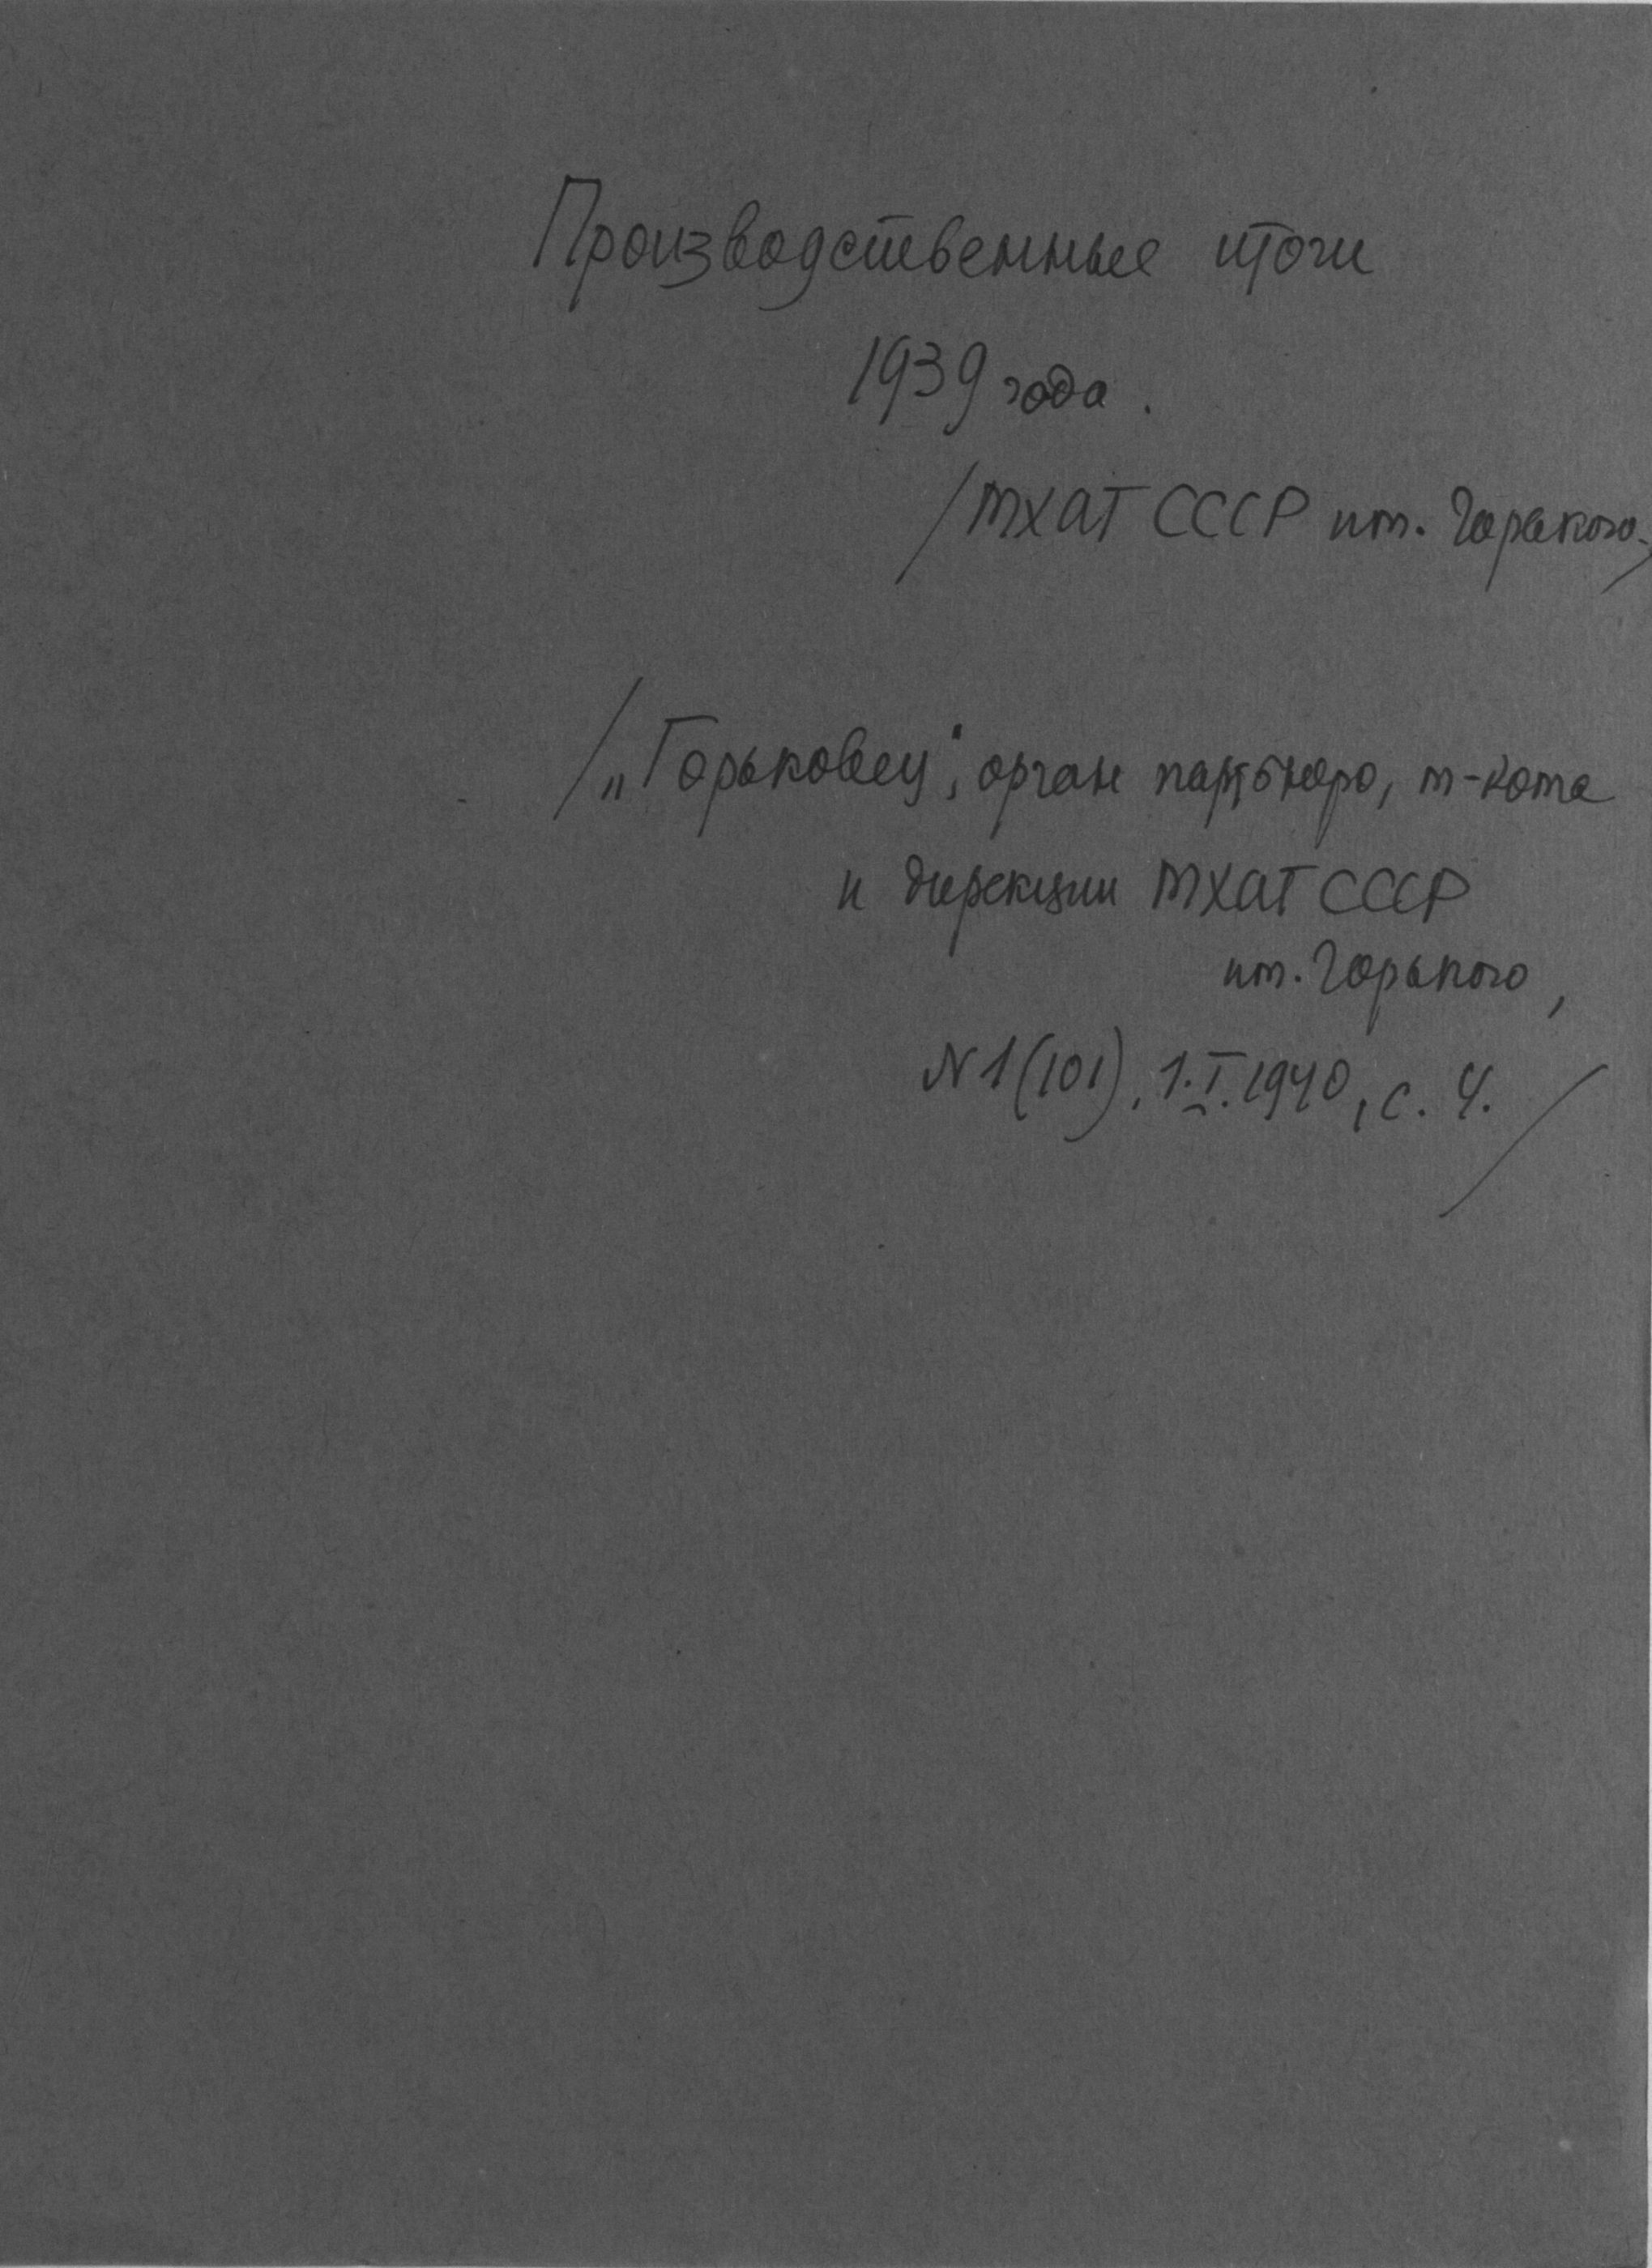 Производственные итоги
1939 года.
/МХАТ СССР им. Горького./
/„Горьковец", орган партбюро, м-кома
и дирекции МХАТ СССР
им. Горького,
N1(101), 1.I.1940, с. 4./